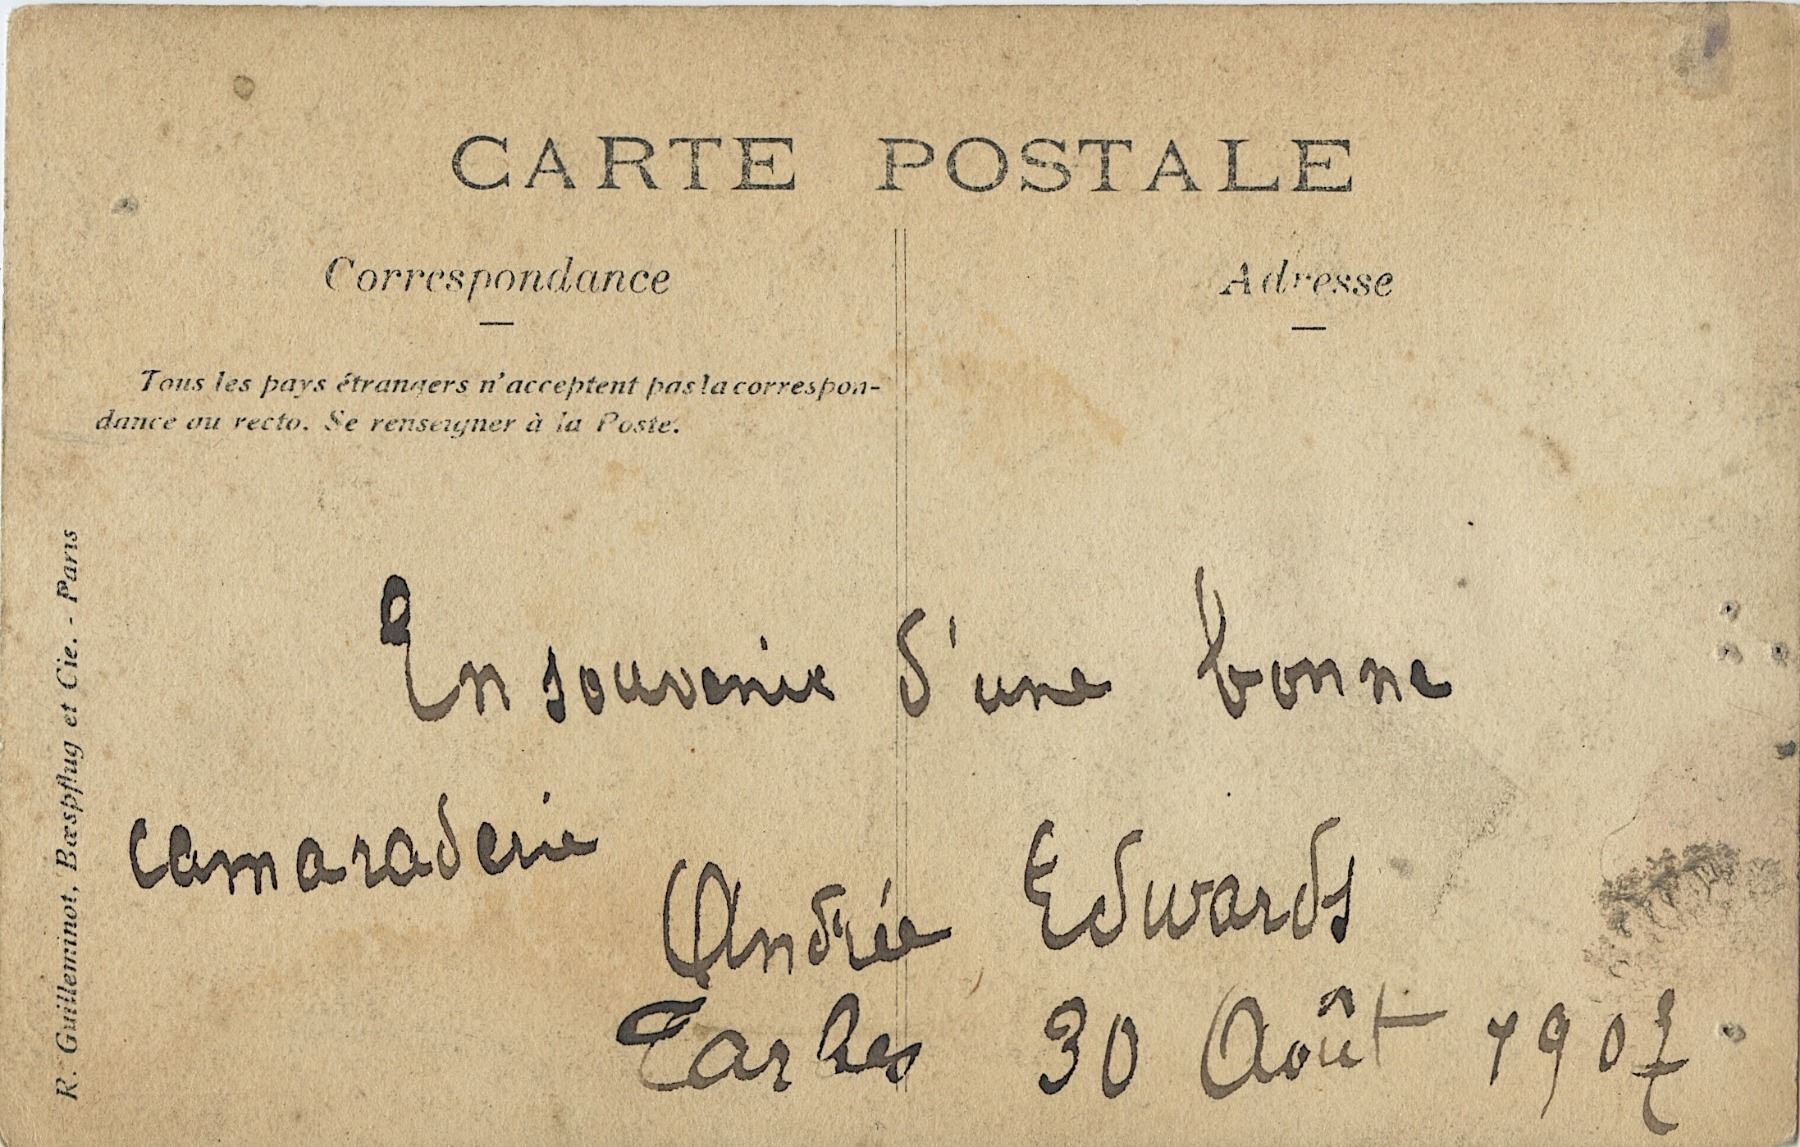 CARTE POSTALE
Correspondance
Adresse
Tous les pays étrangers n'acceptent pas la correspon-
dance au recto. Se renseigner à la Poste.
R. Guilleminot, Bœspflug et Cie. - Paris
En souvenir d'une bonne
camaraderie
Andrée Edwards
Tarbes 30 Août 1907